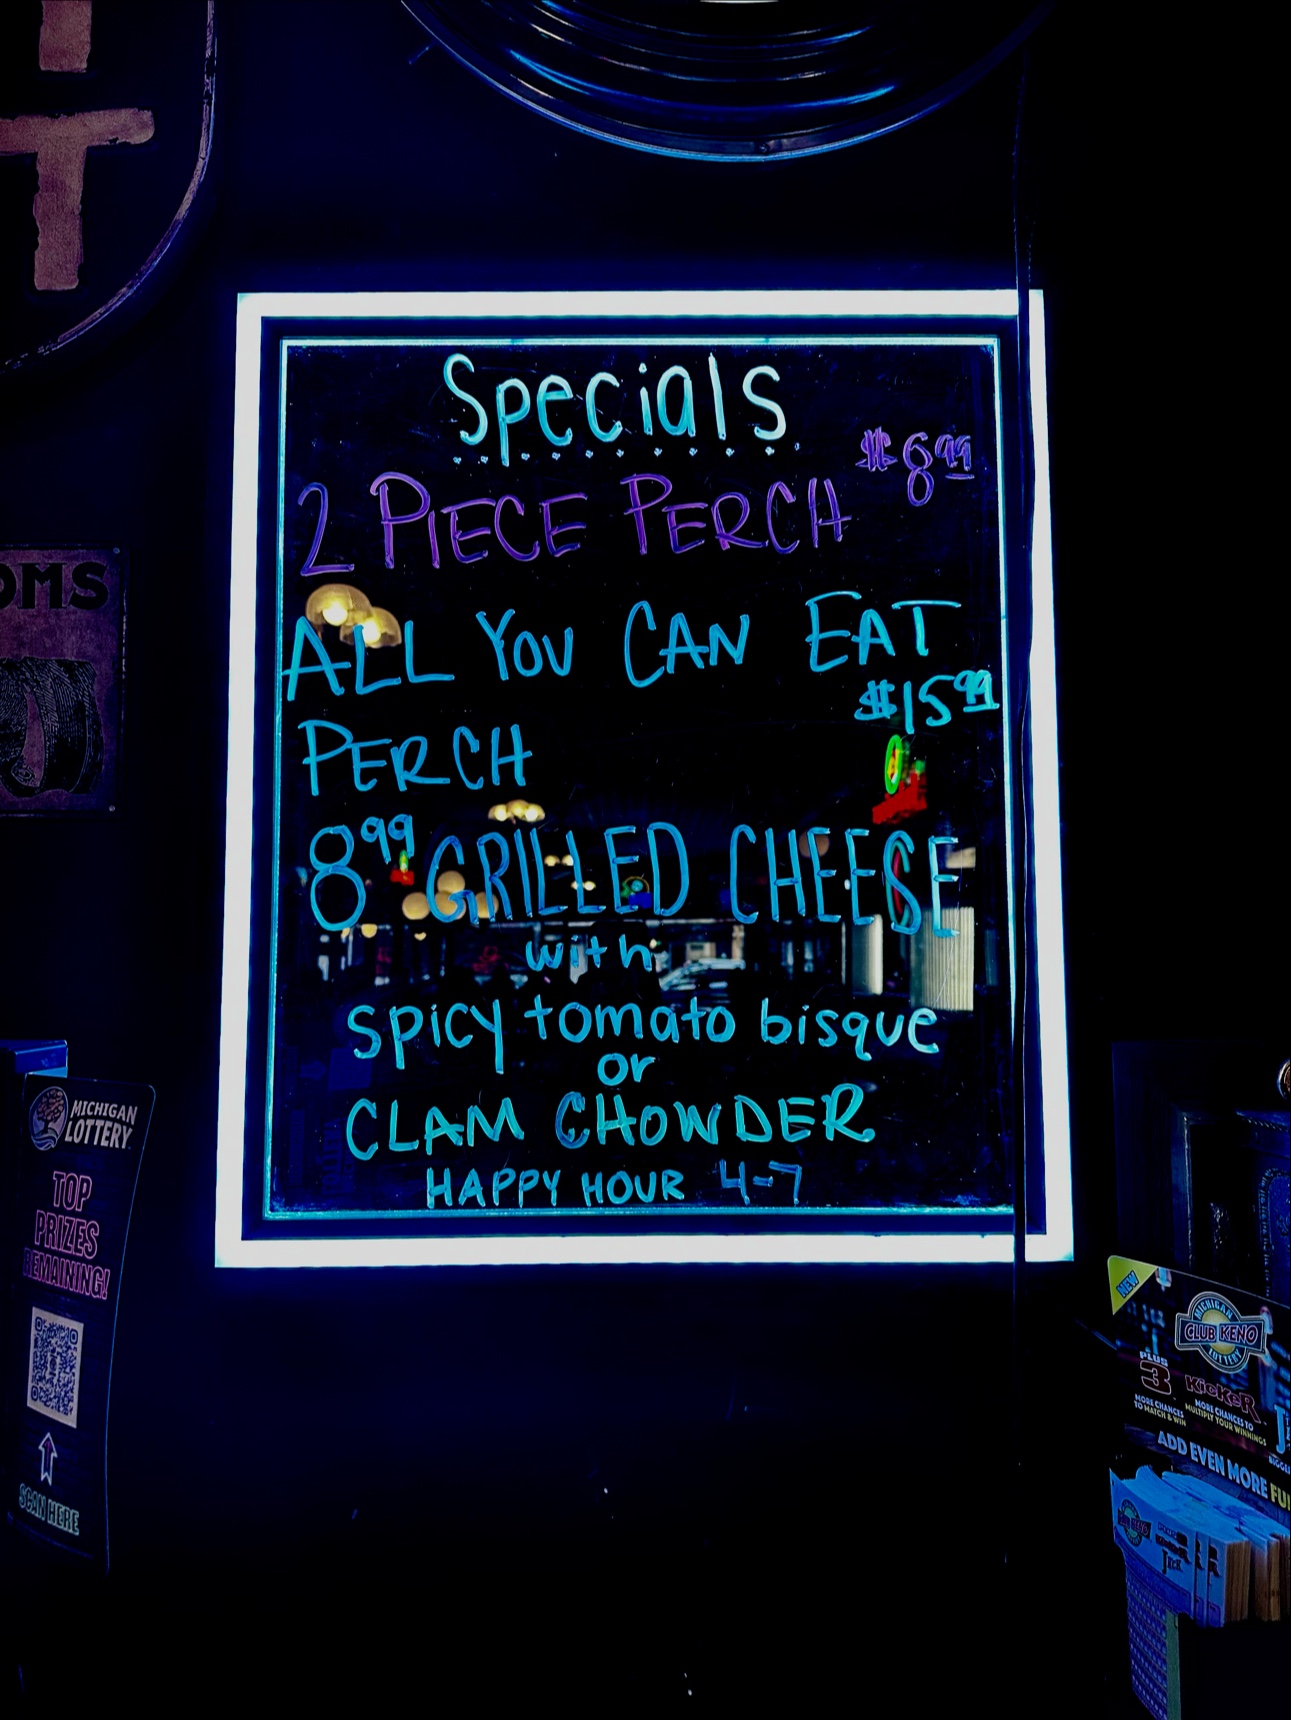 T
OMS
Specials
2 PIECE PERCH $8.99
ALL YOU CAN EAT
PERCH $15.99
8.99 GRILLED CHEESE
with
spicy tomato bisque
or
CLAM CHOWDER
HAPPY HOUR 4-7
MICHIGAN
LOTTERY
TOP
PRIZES
REMAINING!
SCAN HERE
NEW
MICHIGAN
CLUB KENO
LOTTERY
PLUS
3
MORE CHANCES
TO MATCH & WIN
KICKER
MORE CHANCES TO
MULTIPLY YOUR WINNINGS
ADD EVEN MORE FU